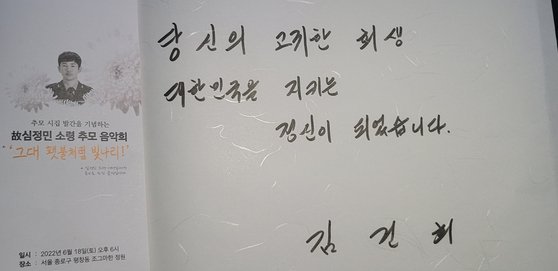 추모 시집 발간을 기념하는
故심정민 소령 추모 음악회
'그대 횃불처럼 빛나리!'
일시 : 2022년 6월 18일(토) 오후 6시
장소 : 서울 종로구 평창동 조그마한 정원
당신의 고귀한 희생
대한민국을 지키는
정신이 되었습니다.
김건희